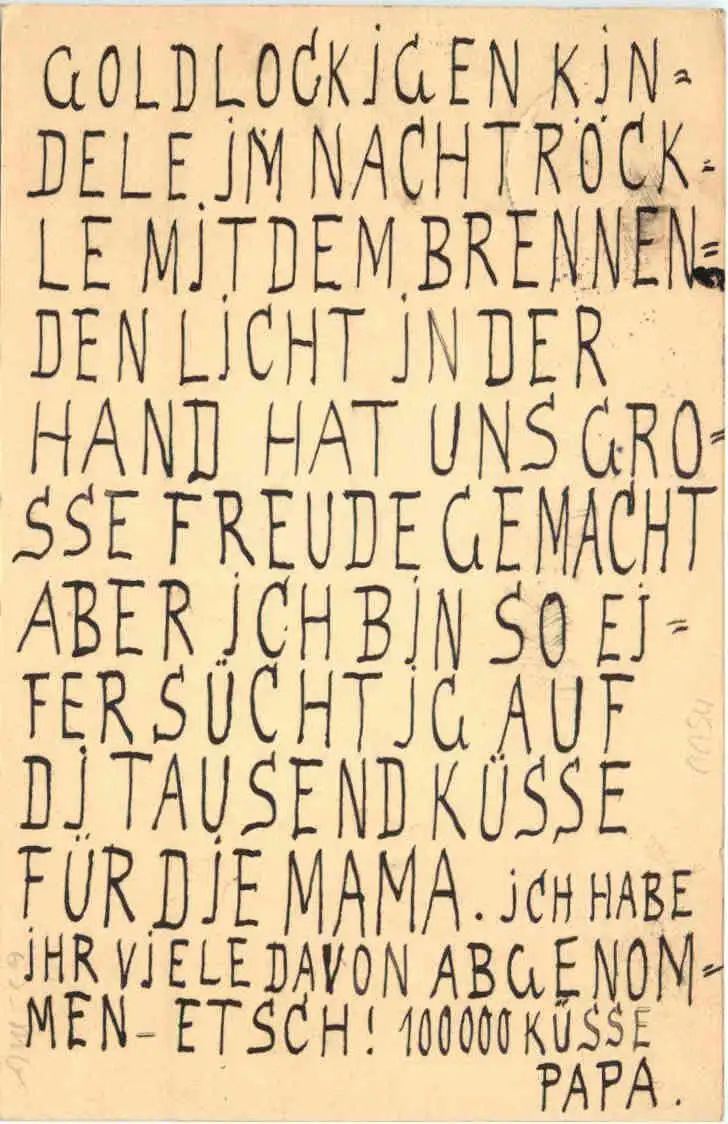 GOLDLOCKIGEN KIN=
DELE IM NACHTRÖCK=
LE MIT DEM BRENNEN=
DEN LICHT IN DER
HAND HAT UNS GRO=
SSE FREUDE GEMACHT
ABER ICH BIN SO EI=
FERSÜCHTIG AUF
DI TAUSEND KÜSSE
FÜR DIE MAMA. ICH HABE
IHR VIELE DAVON ABGENOM=
MEN - ETSCH! 100000 KÜSSE
PAPA.